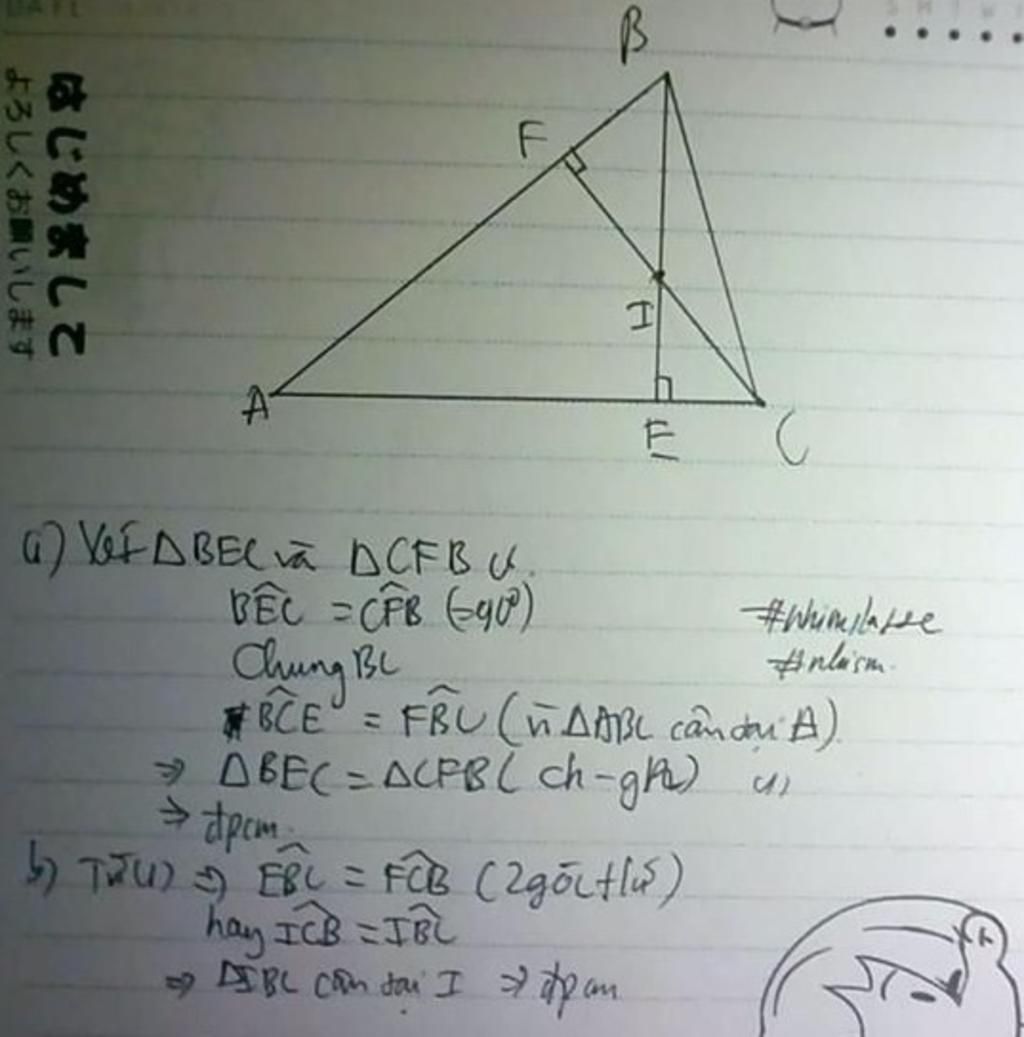 はじめまして
よろしくお願いします
B
F
I
A
E
C
a) Xét ΔBEC và ΔCFB có
BÊC = CF̂B (=90°)
Chung BC
BĈE = FB̂C (vì ΔABC cân tại A)
⇒ ΔBEC = ΔCFB (ch - gn) (1)
⇒ đpcm
b) Từ (1) ⇒ EB̂C = FĈB (2 góc t/ứ)
hay IĈB = IB̂C
⇒ ΔIBC cân tại I ⇒ đpcm